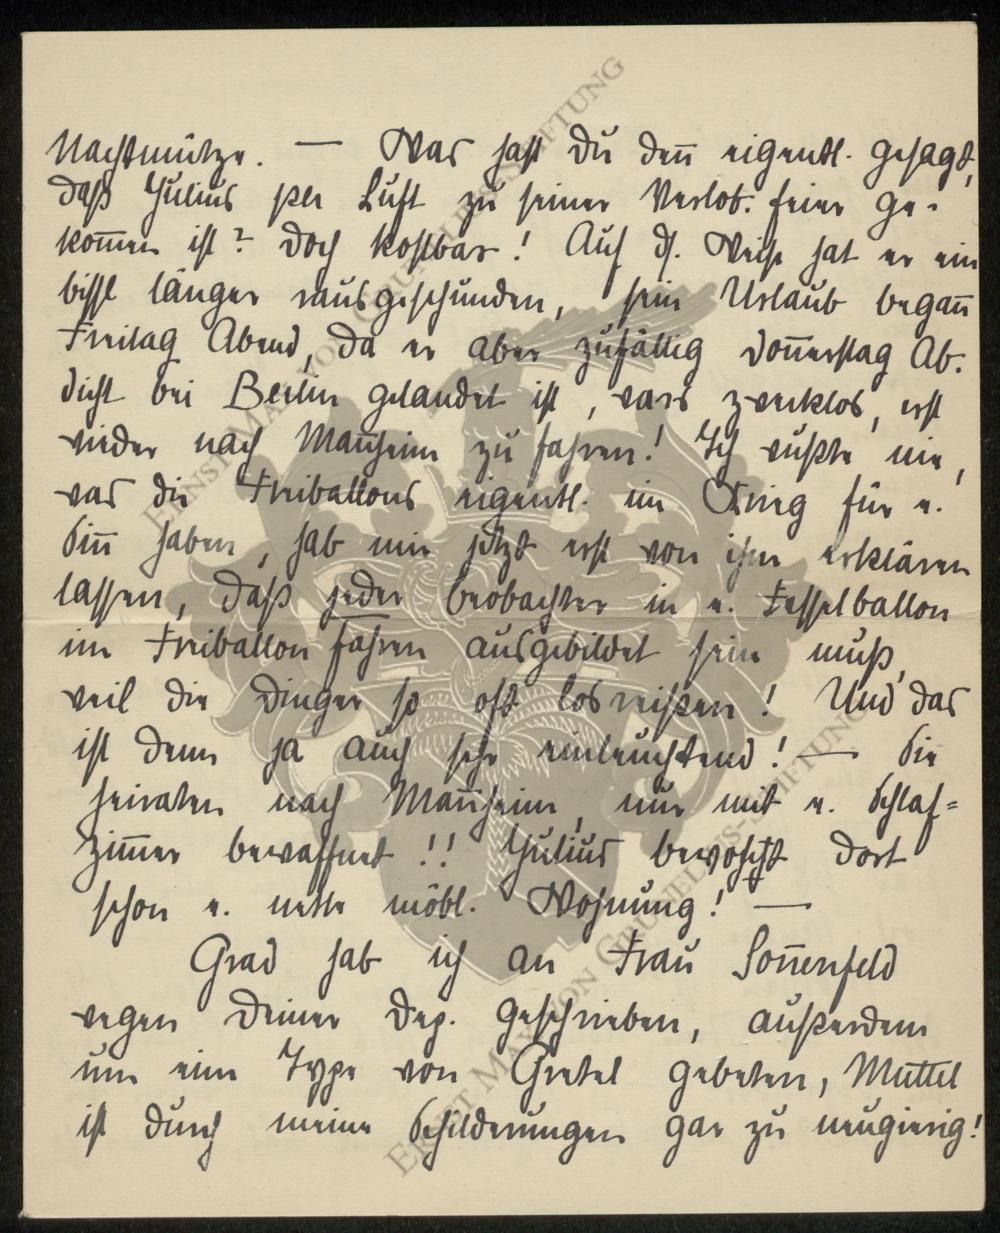 Nachtmütze. — Was hast Du denn̄ eigentl. gesagt,
daß Julius per Luft zu seiner Verlob. feier ge-
kom̄en ist? Doch kostbar! Auf d. Weise hat er ein
bissl länger rausgeschunden, sein Urlaub began̄
Freitag Abend, da er aber zufällig Don̄erstag Ab.
dicht bei Berlin gelandet ist, wars zwecklos, erst
wieder nach Man̄heim zu fahren! Ich wußte nie,
was die Freiballons eigentl. im Krieg für e.
Sin̄ haben, hab mir jetzt erst von ihm erklären
lassen, daß jeder Beobachter in e. Fesselballon
im Freiballon fahren ausgebildet sein muß,
weil die Dinger so oft losreißen! Und das
ist denn ja auch sehr einleuchtend! — Sie
heiraten nach Man̄heim, nur mit e. Schlaf=
zim̄er bewaffnet!! Julius bewohnt dort
schon e. nette möbl. Wohnung! —
Grad hab ich an Frau Son̄enfeld
wegen Deiner Dep. geschrieben, außerdem
um eine Type von Gretel gebeten, Muttel
ist durch meine Schilderungen gar zu neugierig!
ERNST MAX VON GRUNELIUS-STIFTUNG
ERNST MAX VON GRUNELIUS-STIFTUNG